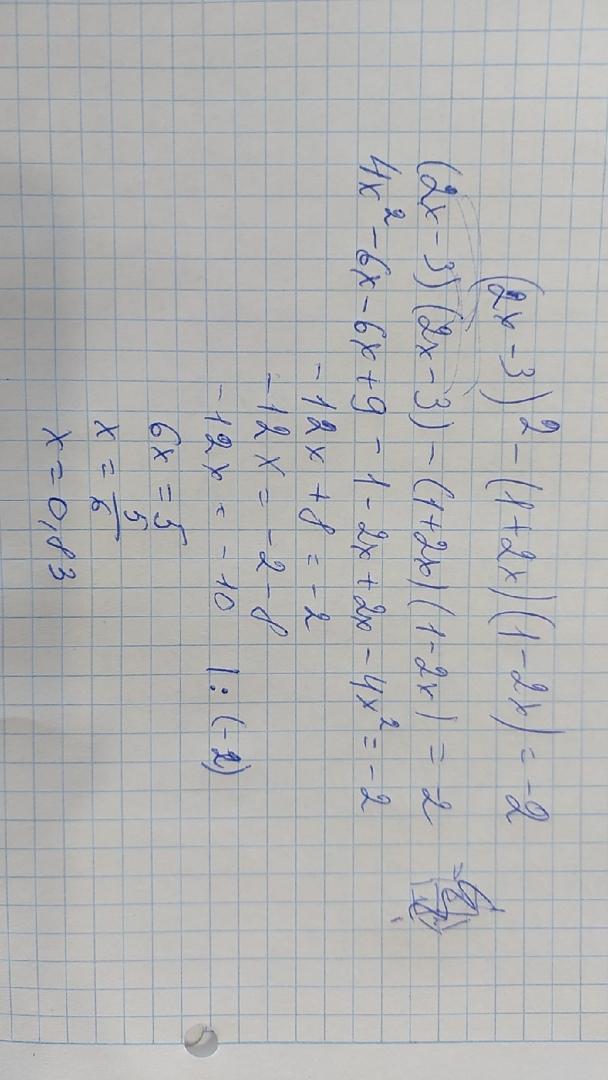 (2x-3)² - (1+2x)(1-2x) = -2
(2x-3)(2x-3) - (1+2x)(1-2x) = -2
4x² - 6x - 6x + 9 - 1 - 2x + 2x - 4x² = -2
-12x + 8 = -2
-12x = -2 - 8
-12x = -10 |:(-2)
6x = 5
x = 5/6
x = 0,83